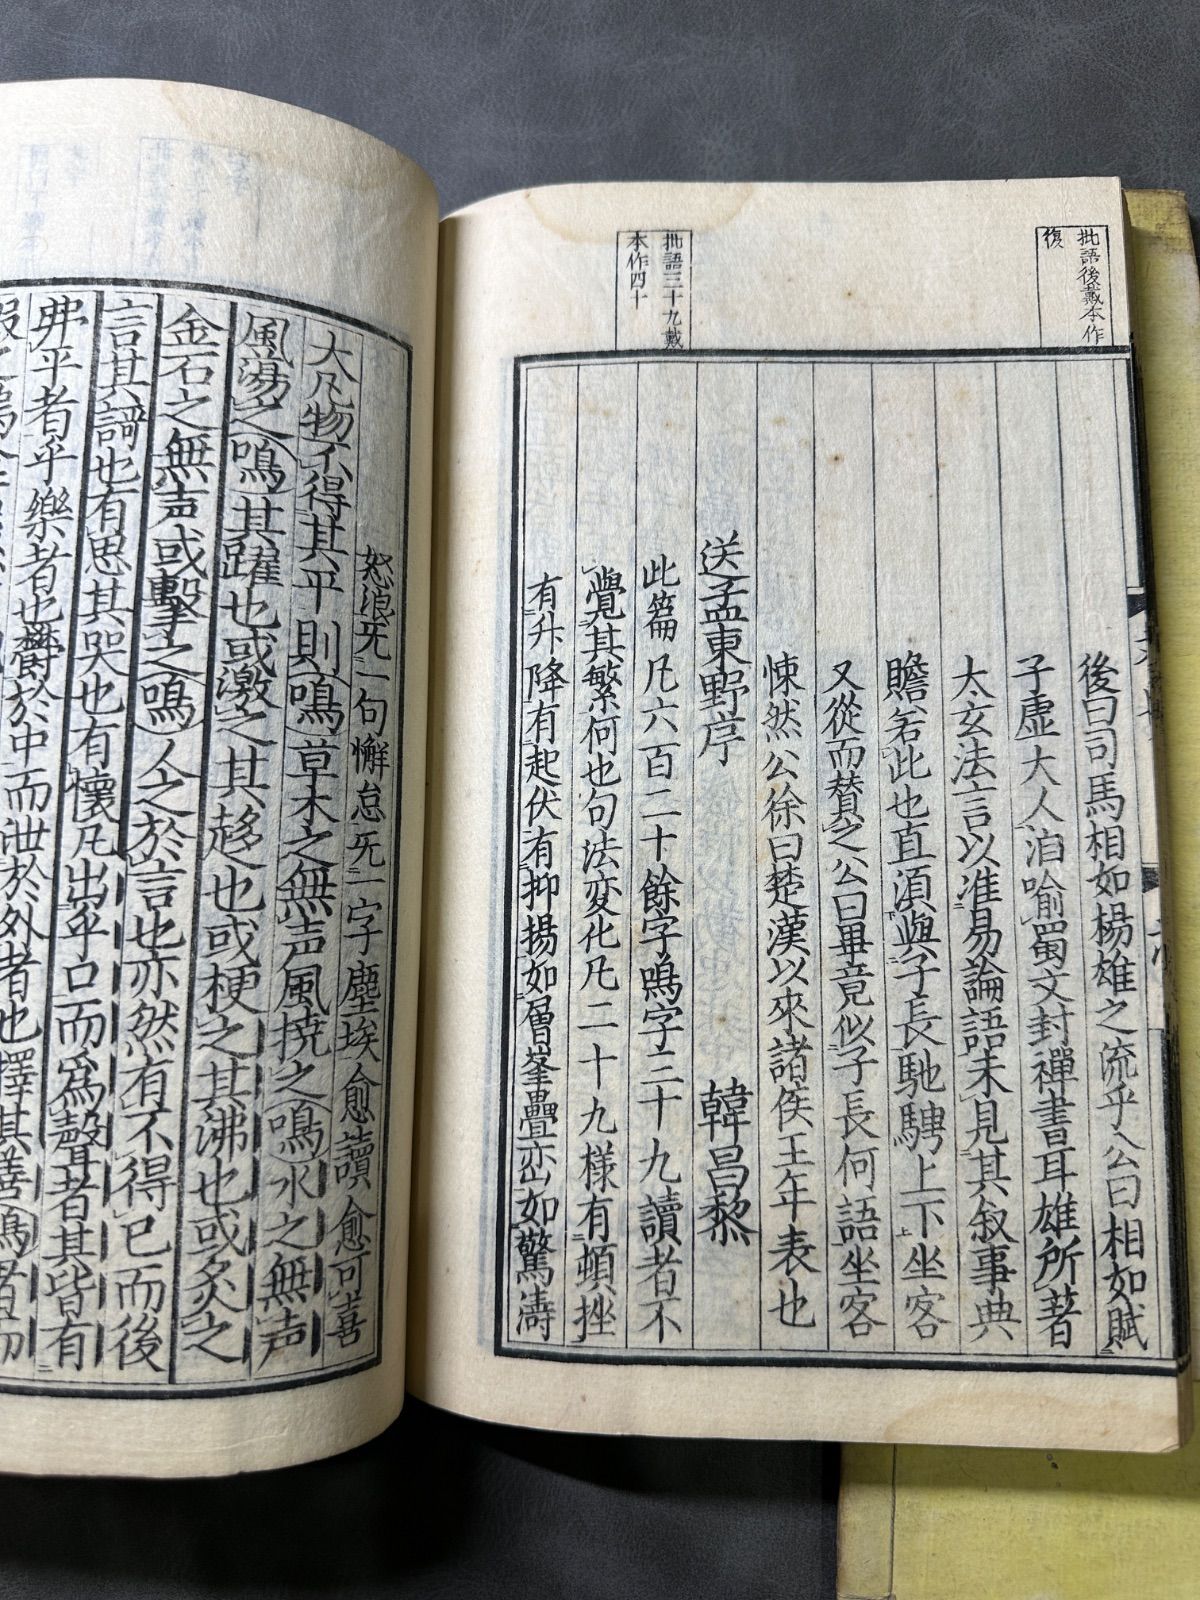 批語後戴本作
復
批語三十九戴
本作四十
後曰司馬相如楊雄之流乎公曰相如賦
子虛大人洎喻蜀文封禪書耳雄所著
太玄法言以准易論語未見其叙事典
贍若此也直須與子長馳騁上下坐客
又從而賛之公曰畢竟似子長何語坐客
悚然公徐曰楚漢以來諸侯王年表也
送孟東野序 韓昌黎
此篇凡六百二十餘字鳴字三十九讀者不
覺其繁何也句法変化凡二十九様有頓挫
有升降有起伏有抑揚如層峯疊巒如驚濤
怒浪无一句懈怠无一字塵埃愈讀愈可喜
大凡物不得其平則鳴草木之無声風撓之鳴水之無声
風蕩之鳴其躍也或激之其趍也或梗之其沸也或炙之
金石之無声或擊之鳴人之於言也亦然有不得已而後
言其謌也有思其哭也有懷凡出乎口而為聲者其皆有
弗平者乎樂者也欝於中而泄於外者也擇其善鳴者